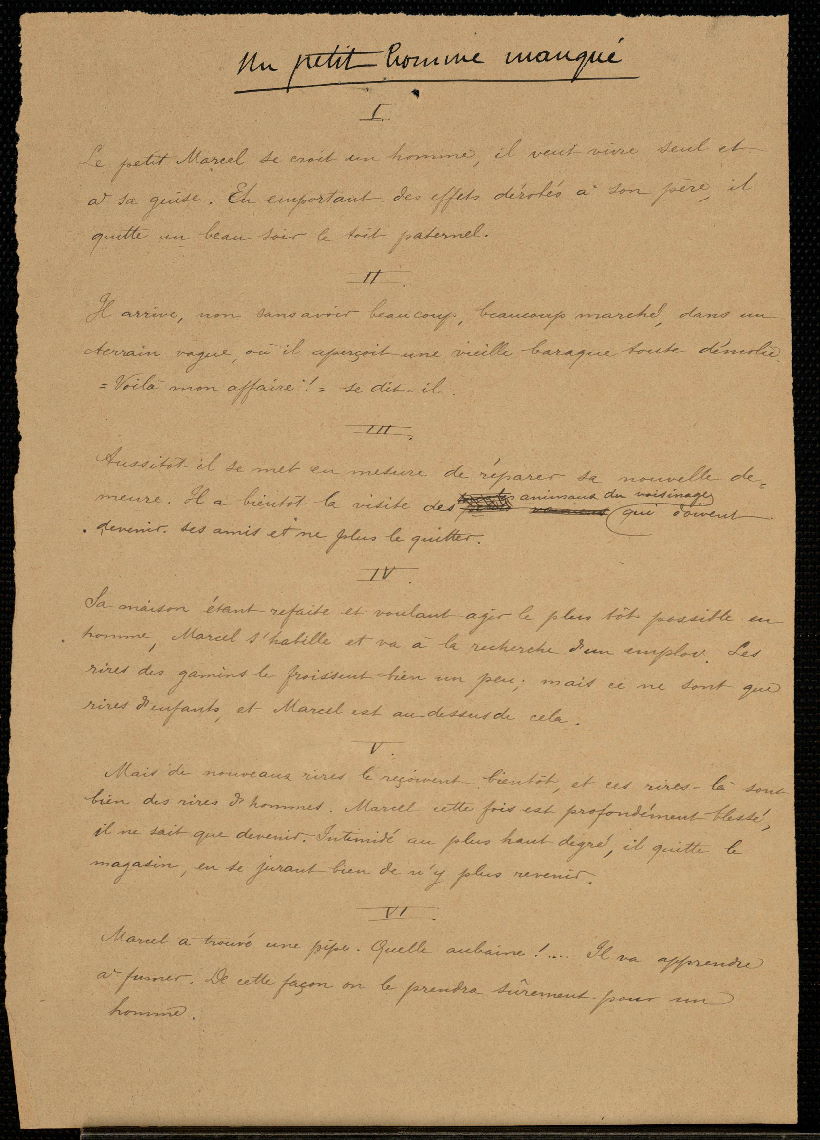 Un petit homme manqué
I
Le petit Marcel se croit un homme, il veut vivre seul et
à sa guise. En emportant des effets dérobés à son père, il
quitte un beau soir le toit paternel.
II
Il arrive, non sans avoir beaucoup, beaucoup marché, dans un
terrain vague, où il aperçoit une vieille baraque toute démolie.
= Voilà mon affaire ! = se dit-il.
III
Aussitôt il se met en mesure de réparer sa nouvelle de=
meure. Il a bientôt la visite des animaux du voisinage
qui doivent
devenir ses amis et ne plus le quitter.
IV
Sa maison étant refaite et voulant agir le plus tôt possible en
homme, Marcel s'habille et va à la recherche d'un emploi. Les
rires des gamins le froissent bien un peu ; mais ce ne sont que
rires d'enfants, et Marcel est au-dessus de cela.
V
Mais de nouveaux rires le reçoivent bientôt, et ces rires-là sont
bien des rires d'hommes. Marcel cette fois est profondément blessé,
il ne sait que devenir. Intimidé au plus haut degré, il quitte le
magasin, en se jurant bien de n'y plus revenir.
VI
Marcel a trouvé une pipe. Quelle aubaine !.... Il va apprendre
à fumer. De cette façon on le prendra sûrement pour un
homme.